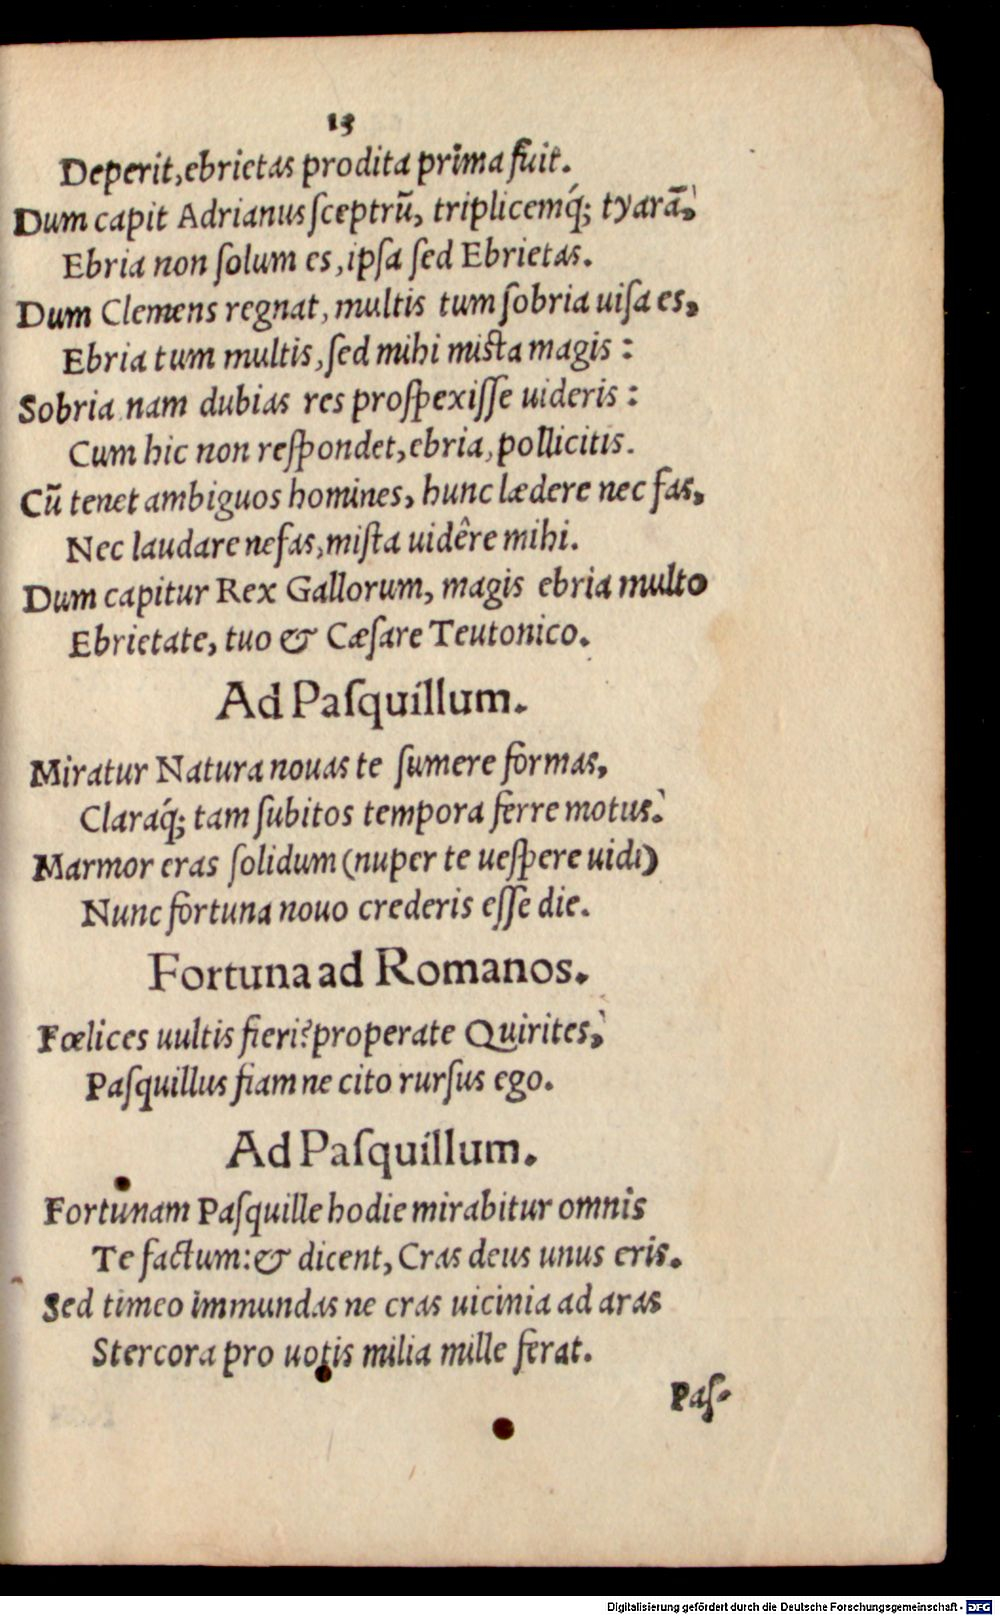 13
Deperit, ebrietas prodita prima fuit.
Dum capit Adrianus ſceptrū, triplicemq́; tyarā,
Ebria non ſolum es, ipſa ſed Ebrietas.
Dum Clemens regnat, multis tum ſobria uiſa es,
Ebria tum multis, ſed mihi miſta magis :
Sobria nam dubias res proſpexiſſe uideris :
Cum hic non reſpondet, ebria, pollicitis.
Cū tenet ambiguos homines, hunc lædere nec fas,
Nec laudare nefas, miſta uidêre mihi.
Dum capitur Rex Gallorum, magis ebria multo
Ebrietate, tuo & Cæſare Teutonico.
Ad Paſquillum.
Miratur Natura nouas te ſumere formas,
Claraq́; tam ſubitos tempora ferre motus.
Marmor eras ſolidum (nuper te ueſpere uidi)
Nunc fortuna nouo crederis eſſe die.
Fortuna ad Romanos.
Fœlices uultis fieri? properate Quirites,
Paſquillus fiam ne cito rurſus ego.
Ad Paſquillum.
Fortunam Paſquille hodie mirabitur omnis
Te factum: & dicent, Cras deus unus eris.
Sed timeo immundas ne cras uicinia ad aras
Stercora pro uotis milia mille ferat.
Paſ-
Digitalisierung gefördert durch die Deutsche Forschungsgemeinschaft - DFG